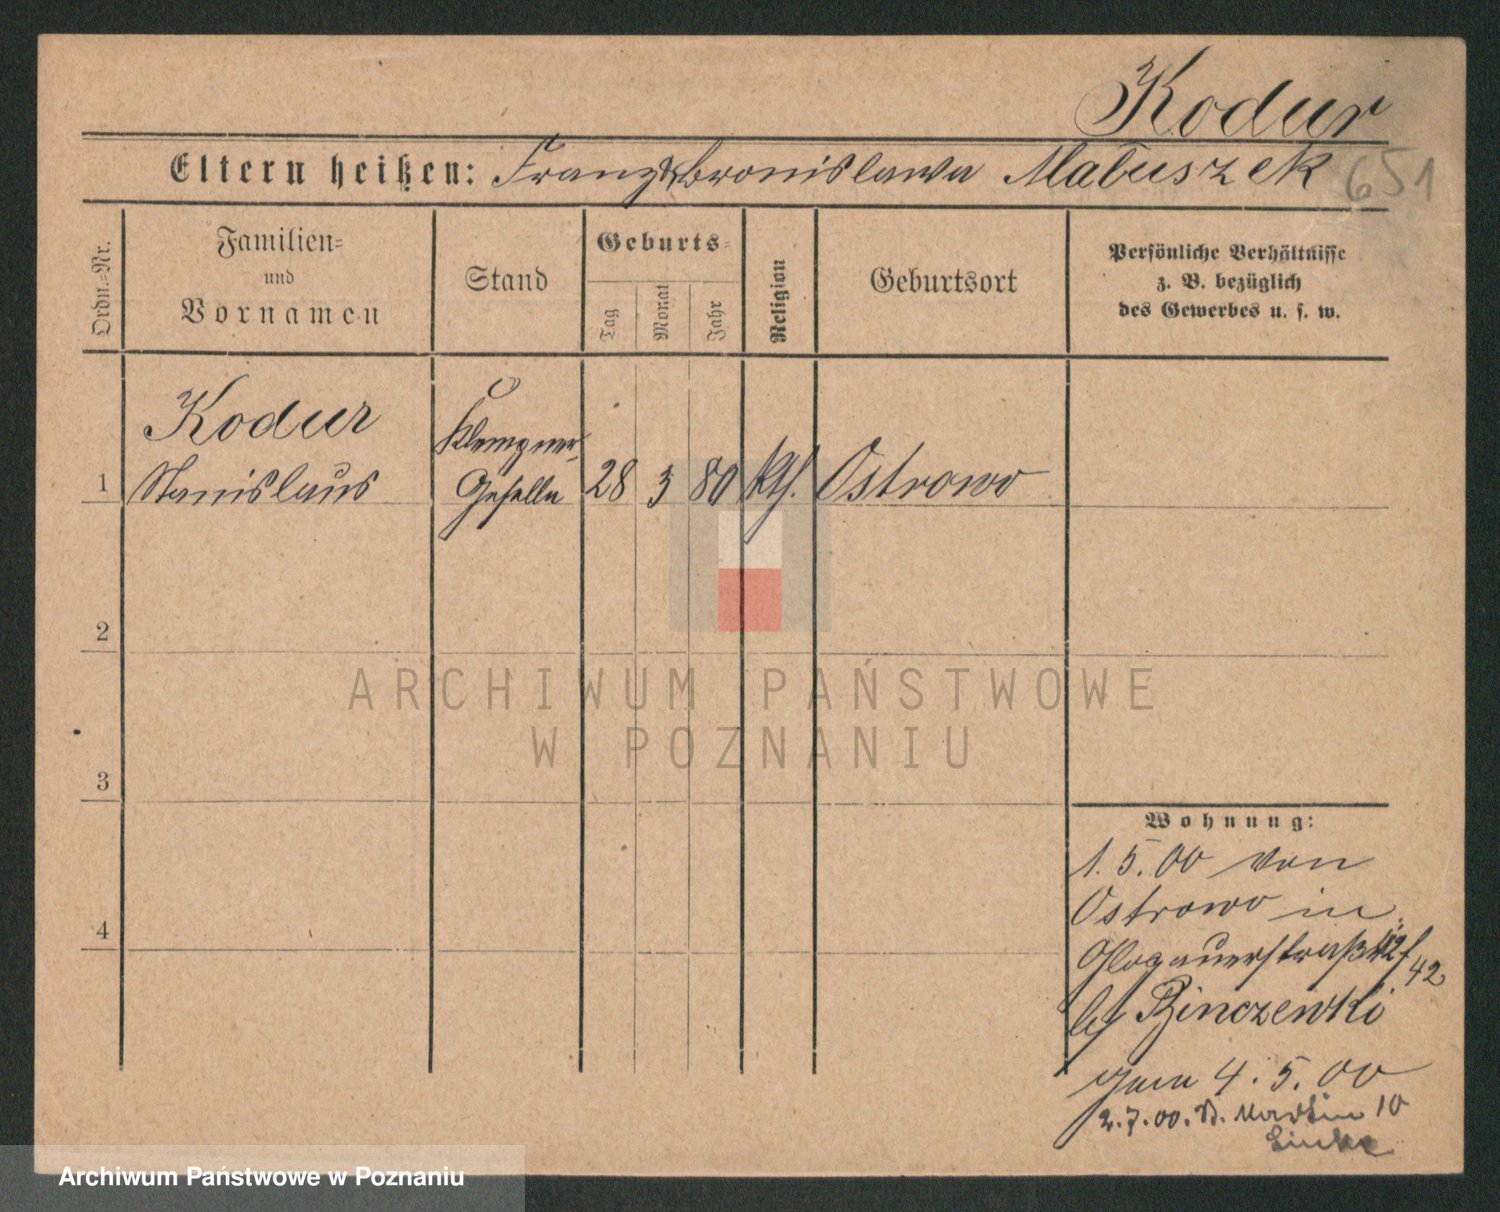 Kodur
Eltern heißen: Franz & Bronislawa Matuszek
651
Ordn.=Nr.
Familien=
und
Vornamen
Stand
Geburts=
Tag
Monat
Jahr
Religion
Geburtsort
Persönliche Verhältnisse
z. B. bezüglich
des Gewerbes u. s. w.
1
Kodur
Stanislaus
Klempner-
Geselle
28
3
80
kth.
Ostrowo
2
3
4
Wohnung:
1. 5. 00 von
Ostrowo in
Glogauerstraße
42
by
gem 4. 5. 00
2. 7. 00. St. Martin 10
ARCHIWUM PAŃSTWOWE
W POZNANIU
Archiwum Państwowe w Poznaniu